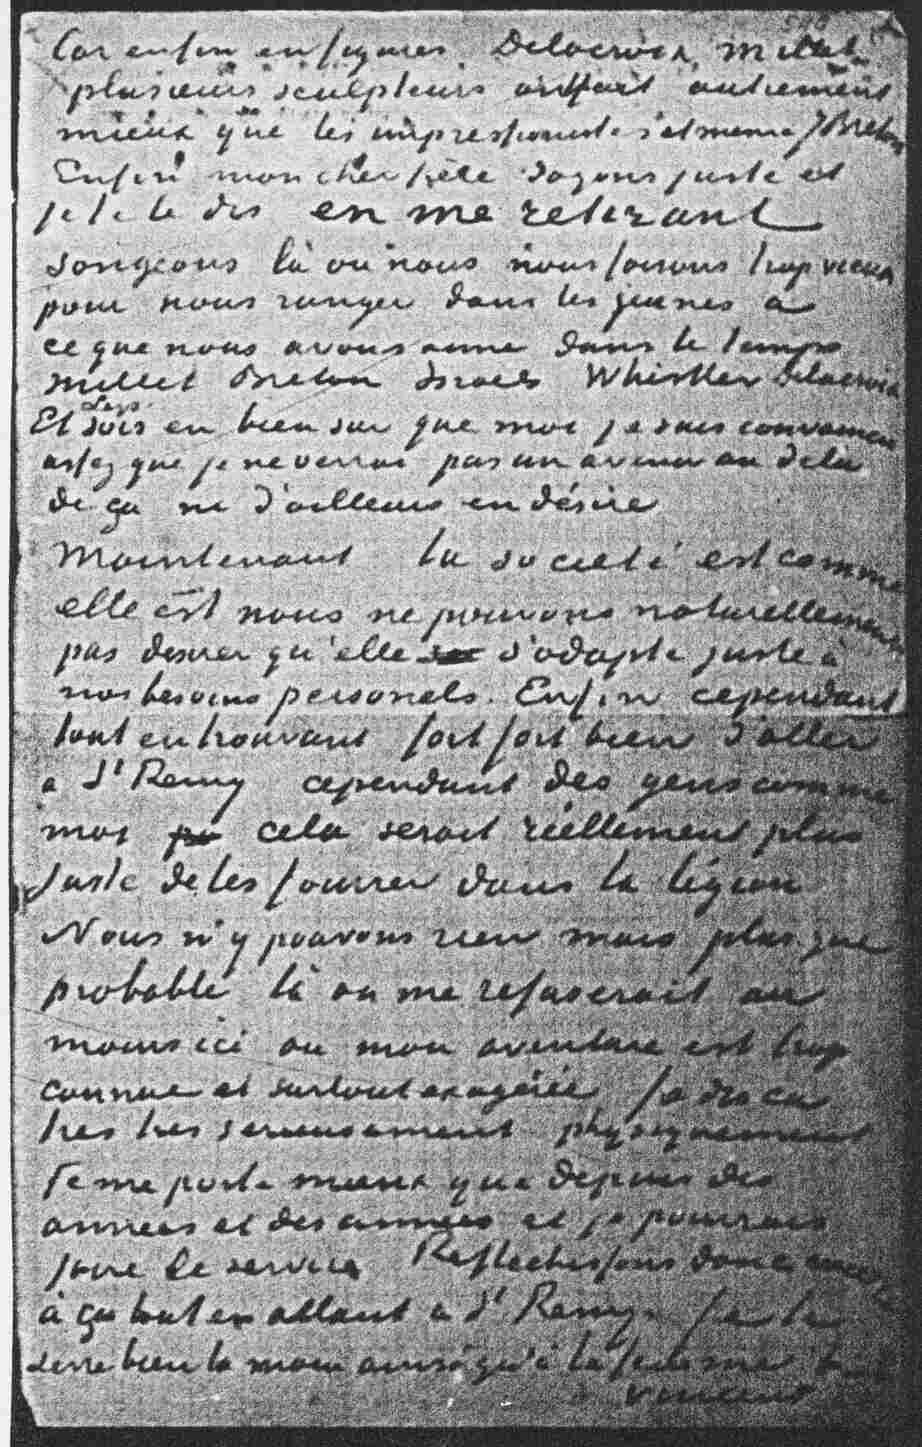 Car enfin en figures Delacroix, Millet
plusieurs sculpteurs ont fait autrement
mieux que les impressionistes et meme J Breton
Enfin mon cher frère soyons juste et
je te le dis en me retirant
songeons là où nous nous faisons trop vieux
pour nous ranger dans les jeunes a
ce que nous avons aimé dans le temps
Millet Breton Israels Whistler Delacroix
Leys
Et sois en bien sur que moi je suis convaincu
assez que je ne verrai pas un avenir au dela
de ça ni d'ailleurs en désire
Maintenant la societé est comme
elle est nous ne pouvons naturellement
pas desirer qu'elle s'adapte juste à
nos besoins personels. Enfin cependant
tout en trouvant fort fort bien d'aller
a St Remy cependant des gens comme
moi cela serait réellement plus
juste de les fourrer dans la légion
Nous n'y pouvons rien mais plus que
probable là on me refuserait au
moins ici ou mon aventure est trop
connue et surtout exagérée Je dis ca
tres tres serieusement physiquement
Je me porte mieux que depuis des
annees et des annees et je pourrais
faire le service Reflechissons donc encore
à ça tout en allant a St Remy. Je te
serre bien la main ainsi qu'à ta femme
Vincent